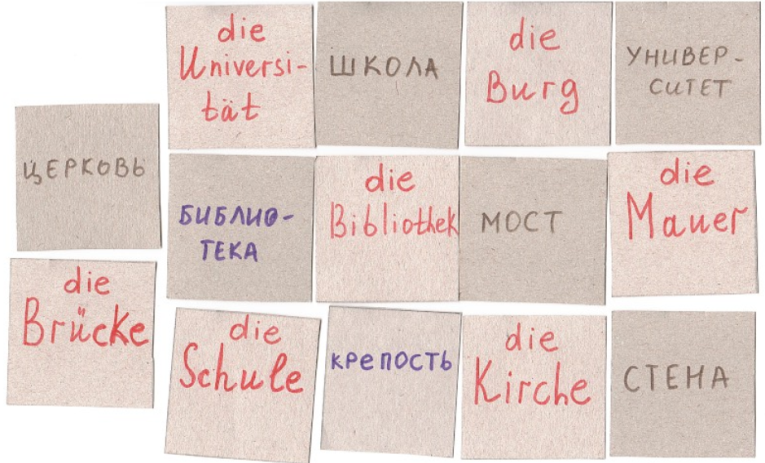 die
Universi-
tät
ШКОЛА
die
Burg
УНИВЕР-
СИТЕТ
ЦЕРКОВЬ
БИБЛИО-
ТЕКА
die
Bibliothek
МОСТ
die
Mauer
die
Brücke
die
Schule
КРЕПОСТЬ
die
Kirche
СТЕНА